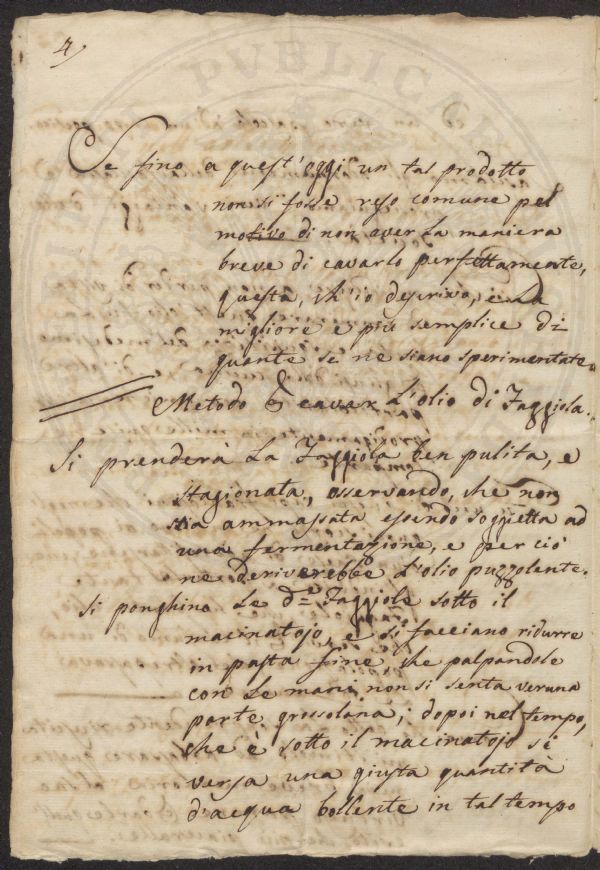 4
Se fino a quest'oggi un tal prodotto
non si fosse reso comune pel
motivo di non aver la maniera
breve di cavarlo perfettamente,
questa, ch'io descrivo, è la
migliore e più semplice di
quante se ne siano sperimentate.
Metodo cavar L'olio di Faggiola.
Si prenderà La Faggiola ben pulita, e
stagionata, osservando, che non
sia ammassata essendo soggietta ad
una fermentazione, e per ciò
ne deriverebbe L'olio puzzolente.
Si ponghino Le d.e Faggiole sotto il
macinatojo, e si facciano ridurre
in pasta fine, che palpandole
con Le mani non si senta veruna
parte grossolana; dopoi nel tempo,
che è sotto il macinatojo se
versa una giusta quantità
d'acqua bollente in tal tempo
PVBLICAE